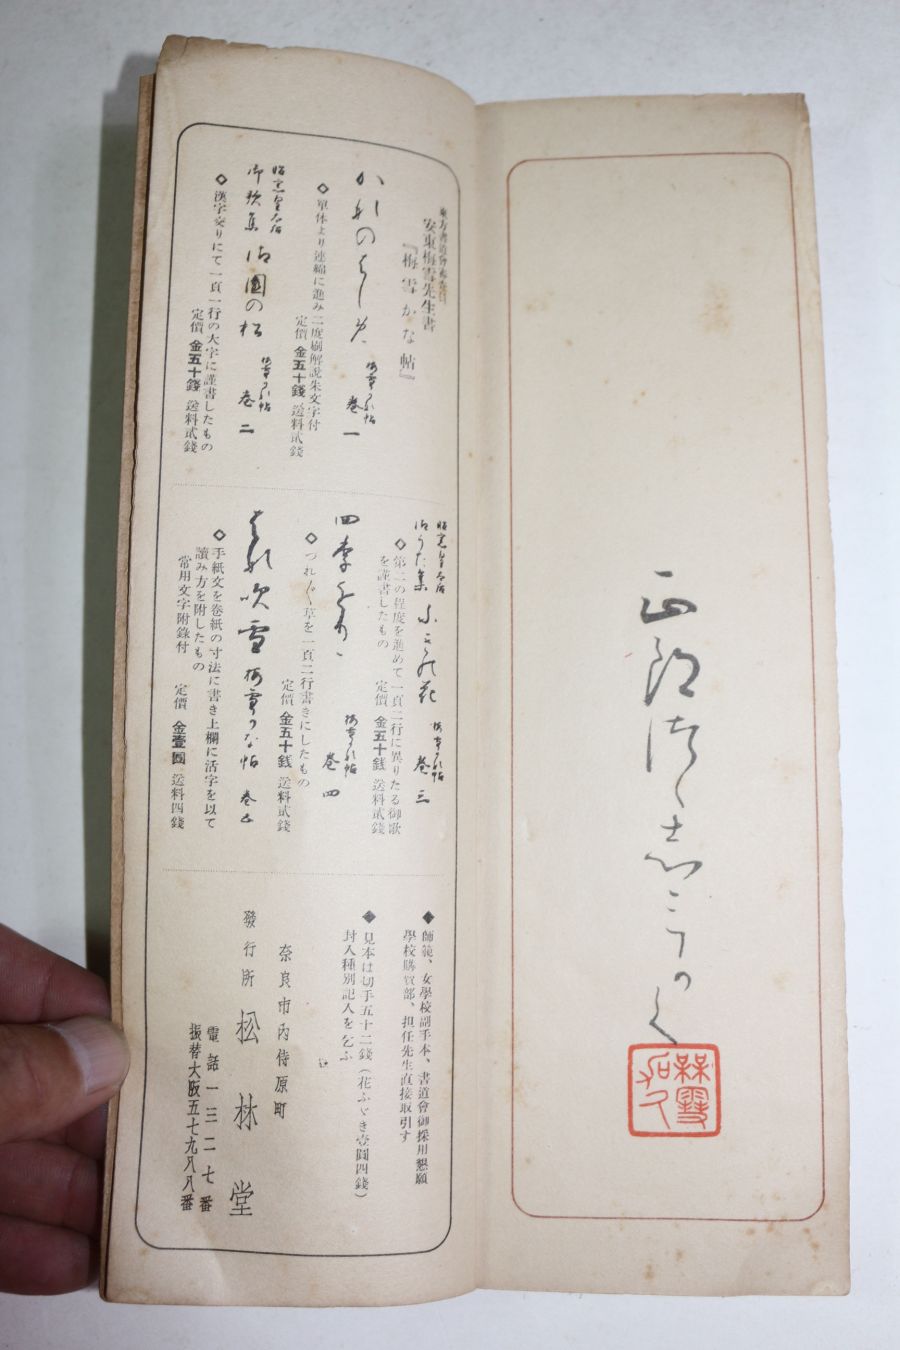 安東梅雪先生書
『梅雪かな帖』
かれのはしめ
梅雪かな帖 卷一
◇單体より連綿に進み二度刷解説朱文字付
定價 金五十錢 送料貳錢
昭憲皇太后
御歌集 御國の松
梅雪かな帖 卷二
◇漢字交りにて一頁一行の大字に謹書したもの
定價 金五十錢 送料貳錢
昭憲皇太后
梅雪かな帖 卷三
◇第二の程度を進めて一頁二行に異りたる御歌
を謹書したもの
定價 金五十錢 送料貳錢
梅雪かな帖 卷四
◇つれ〴〵草を一頁二行書きにしたもの
定價 金五十錢 送料貳錢
はな吹雪 梅雪かな帖 卷五
◇手紙文を卷紙の寸法に書き上欄に活字を以て
讀み方を附したもの
常用文字附錄付
定價 金壹圓 送料四錢
◆師範、女學校副手本、書道會御採用懇願
學校購買部、担任先生直接取引す
◆見本は切手五十二錢(花ふゞき壹圓四錢)
封入種別記入を乞ふ
奈良市內侍原町
發行所 松林堂
電話一三二七番
振替大阪五七九八八番